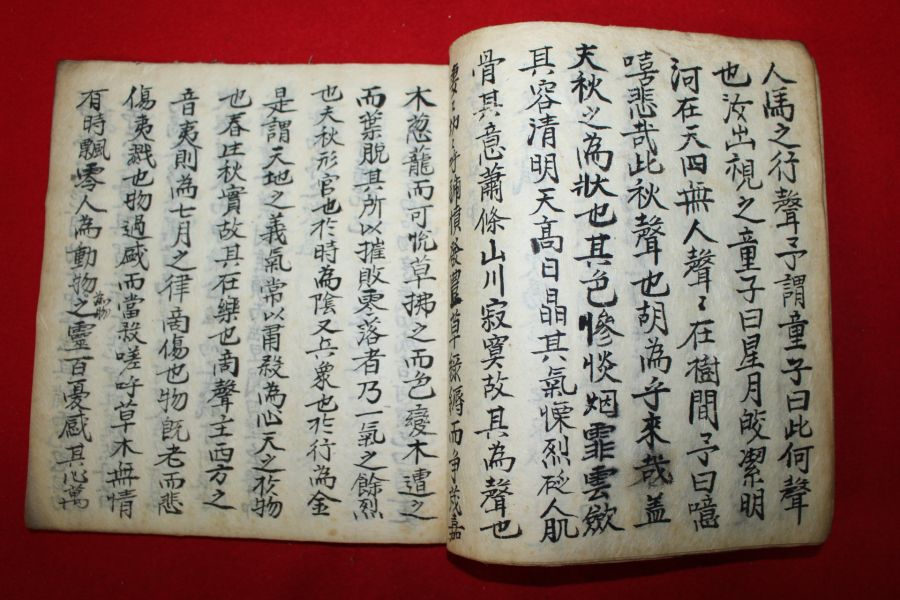 人馬之行聲予謂童子曰此何聲
也汝出視之童子曰星月皎潔明
河在天四無人聲〻在樹間予曰噫
嘻悲哉此秋聲也胡為乎來哉蓋
夫秋之為狀也其色慘惔烟霏雲斂
其容清明天高日晶其氣慄烈砭人肌
骨其意蕭條山川寂寞故其為聲也
憤發豊草綠縟而争茂嘉
木葱龍而可悅草拂之而色變木遭之
而葉脫其所以摧敗零落者乃一氣之餘烈
也夫秋形官也於時為陰又兵象也於行為金
是謂天地之義氣常以肅殺為心天之於物
也春生秋實故其在樂也商聲主西方之
音夷則為七月之律商傷也物既老而悲
傷夷戮也物過盛而當殺嗟呼草木無情
有時飄零人為動物之靈百憂感其心萬